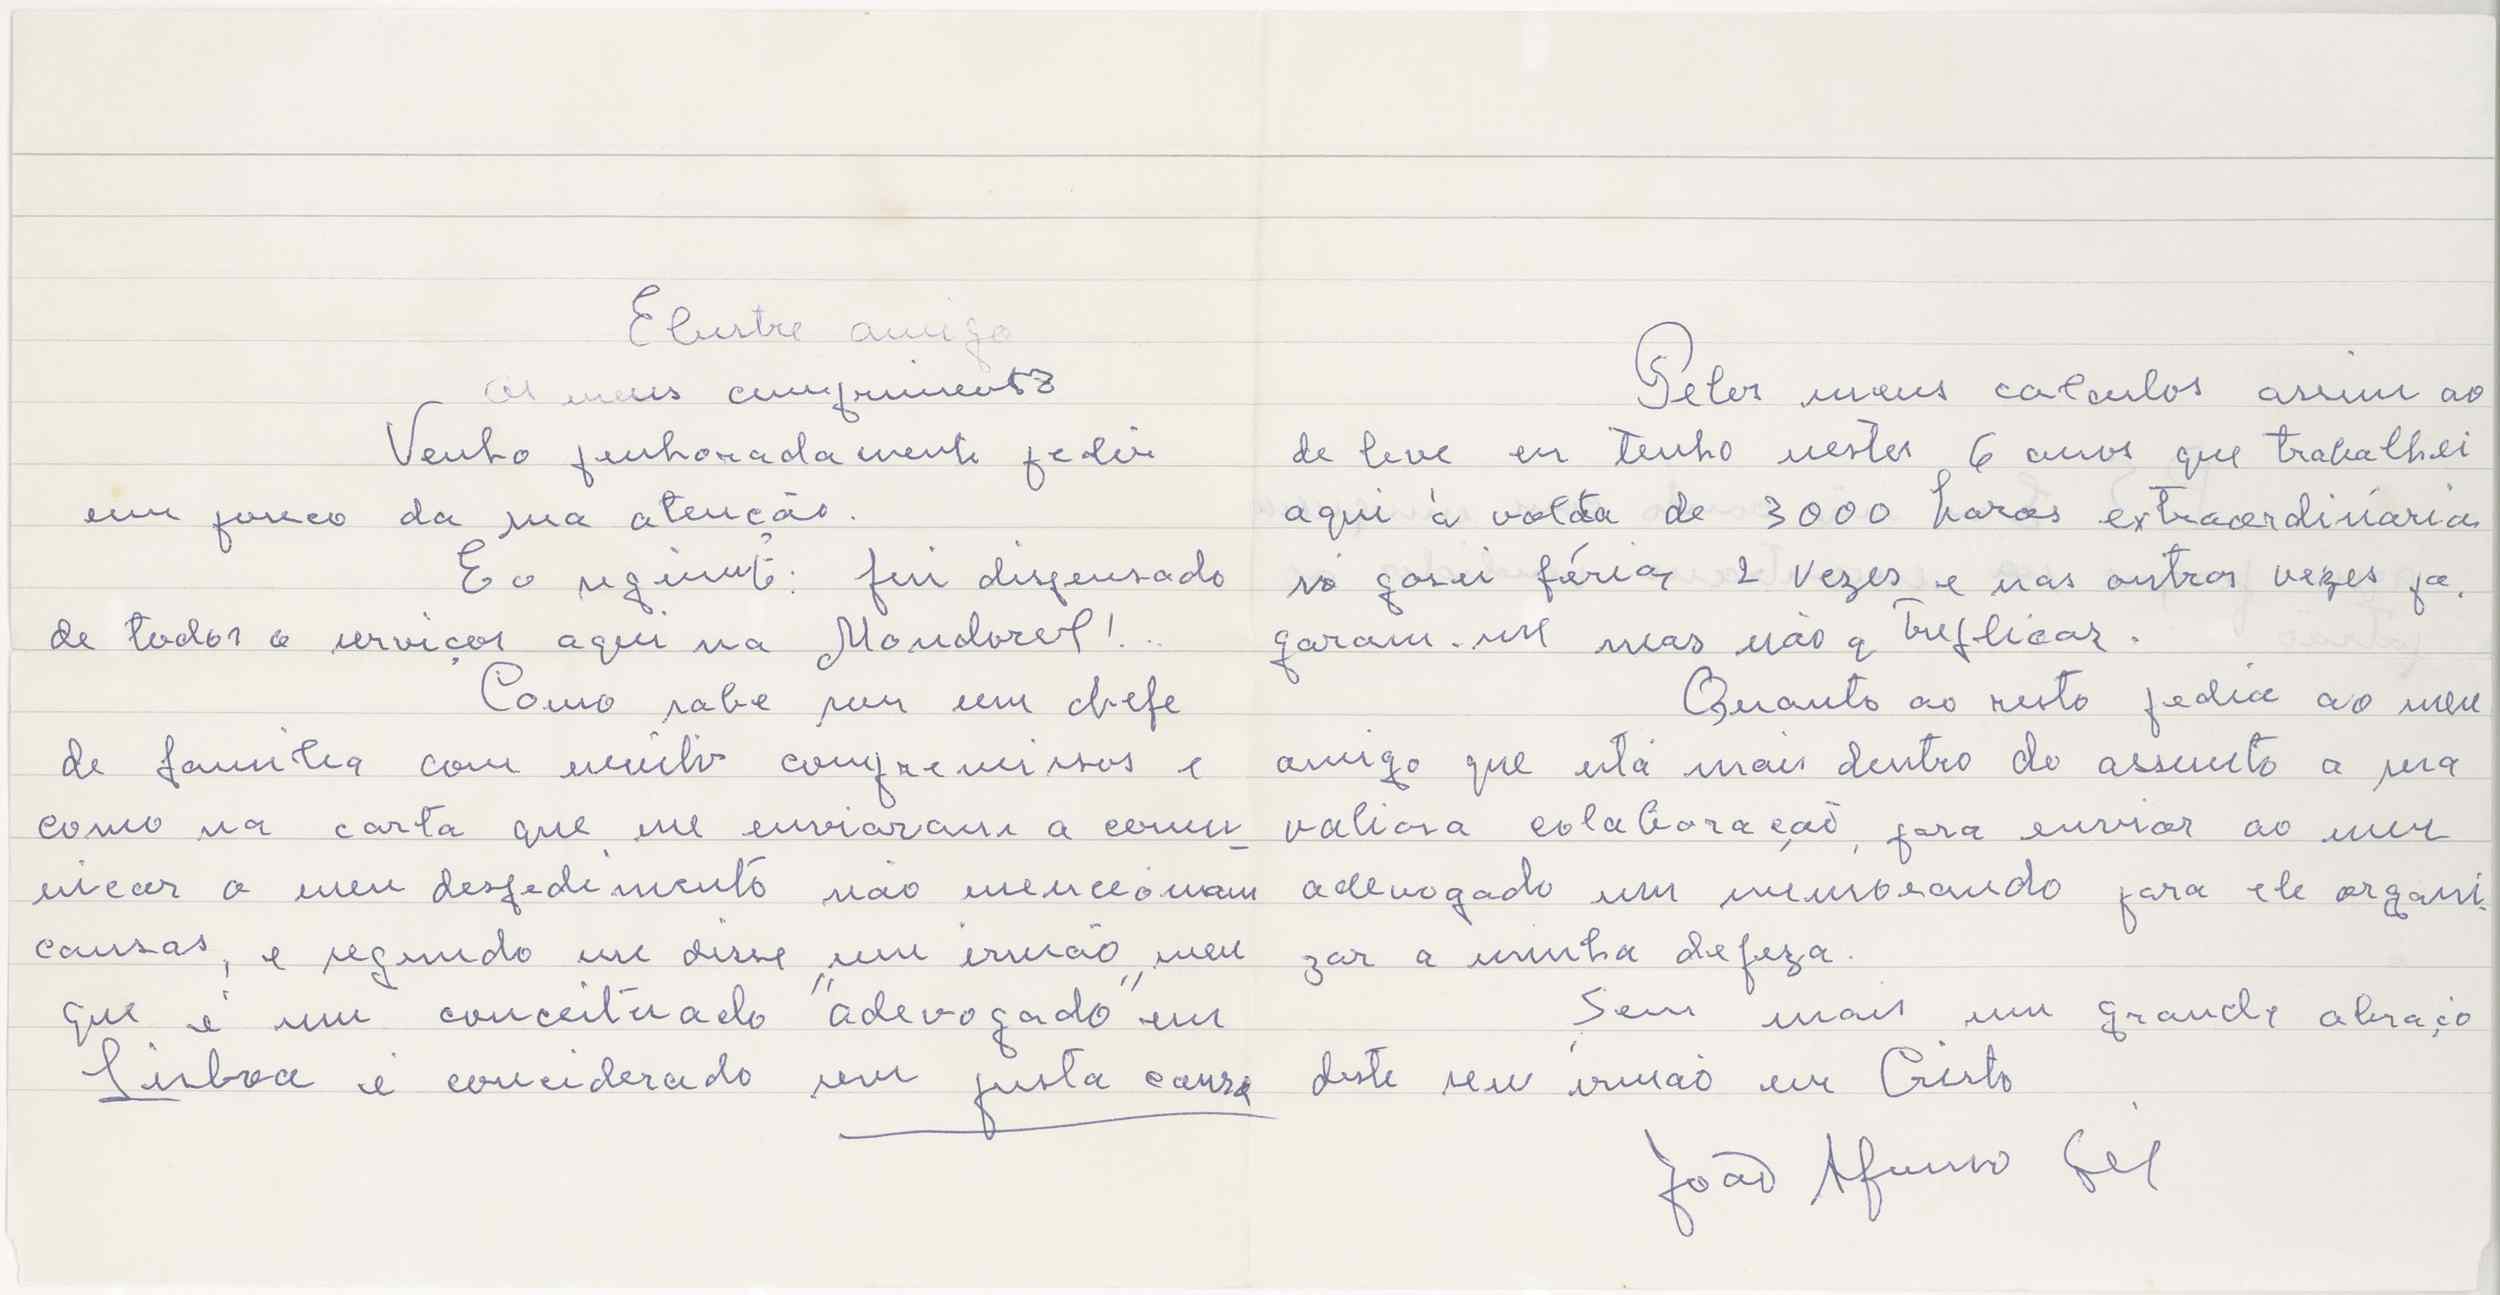 Elustre amigo
Os meus cumprimentos
Venho penhoradamente pedir
um pouco da sua atenção.
E o seguinte: fui dispensado
de todos o serviços aqui na Mondorel!..
Como sabe sou um chefe
de familia com muito compremisos e
como na carta que me enviaram a comu-
nicar o meu despedimento não mencionam
causas, e segundo me disse um irmão meu
que é um conceituado "adevogado" em
Lisboa é conciderado sem justa causa
Pelos meus calculos assim ao
de leve eu tenho nestes 6 anos que trabalhei
aqui à volta de 3000 horas extraordinárias
só gosei férias 2 vezes e nas outras vezes pa-
garam-me mas não a treplicar.
Quanto ao resto pedia ao meu
amigo que está mais dentro do assunto a sua
valiosa colaboração, para enviar ao meu
adevogado um memorando para ele organi-
zar a minha defeza.
Sem mais um grande abraço
deste seu irmão em Cristo
João Afonso Gil